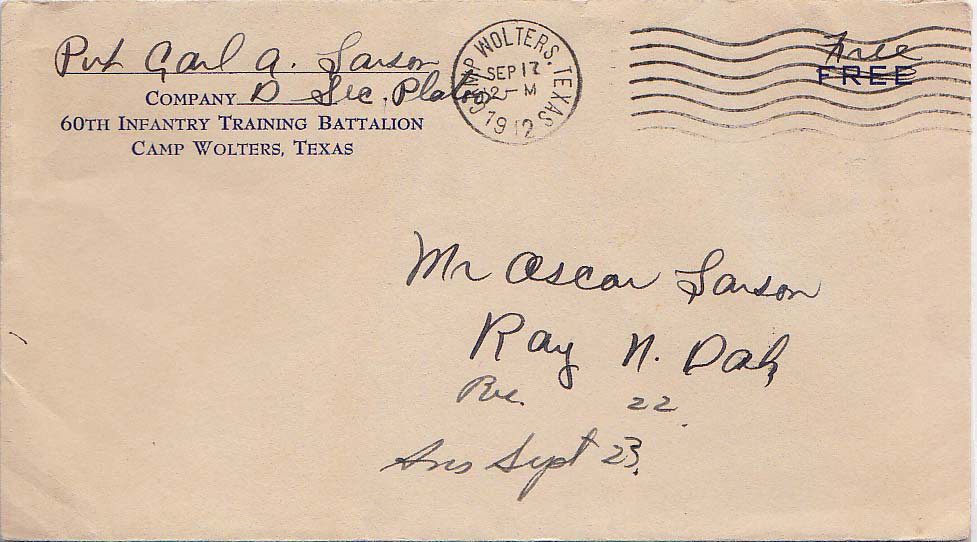 Pvt Carl A. Larson
COMPANY D Sec. Platoon
60TH INFANTRY TRAINING BATTALION
CAMP WOLTERS, TEXAS
CAMP WOLTERS, TEXAS
SEP 17
12-M
1942
Free
FREE
Mr Oscar Larson
Ray N. Dak,
Rec. 22
Ans Sept 23.